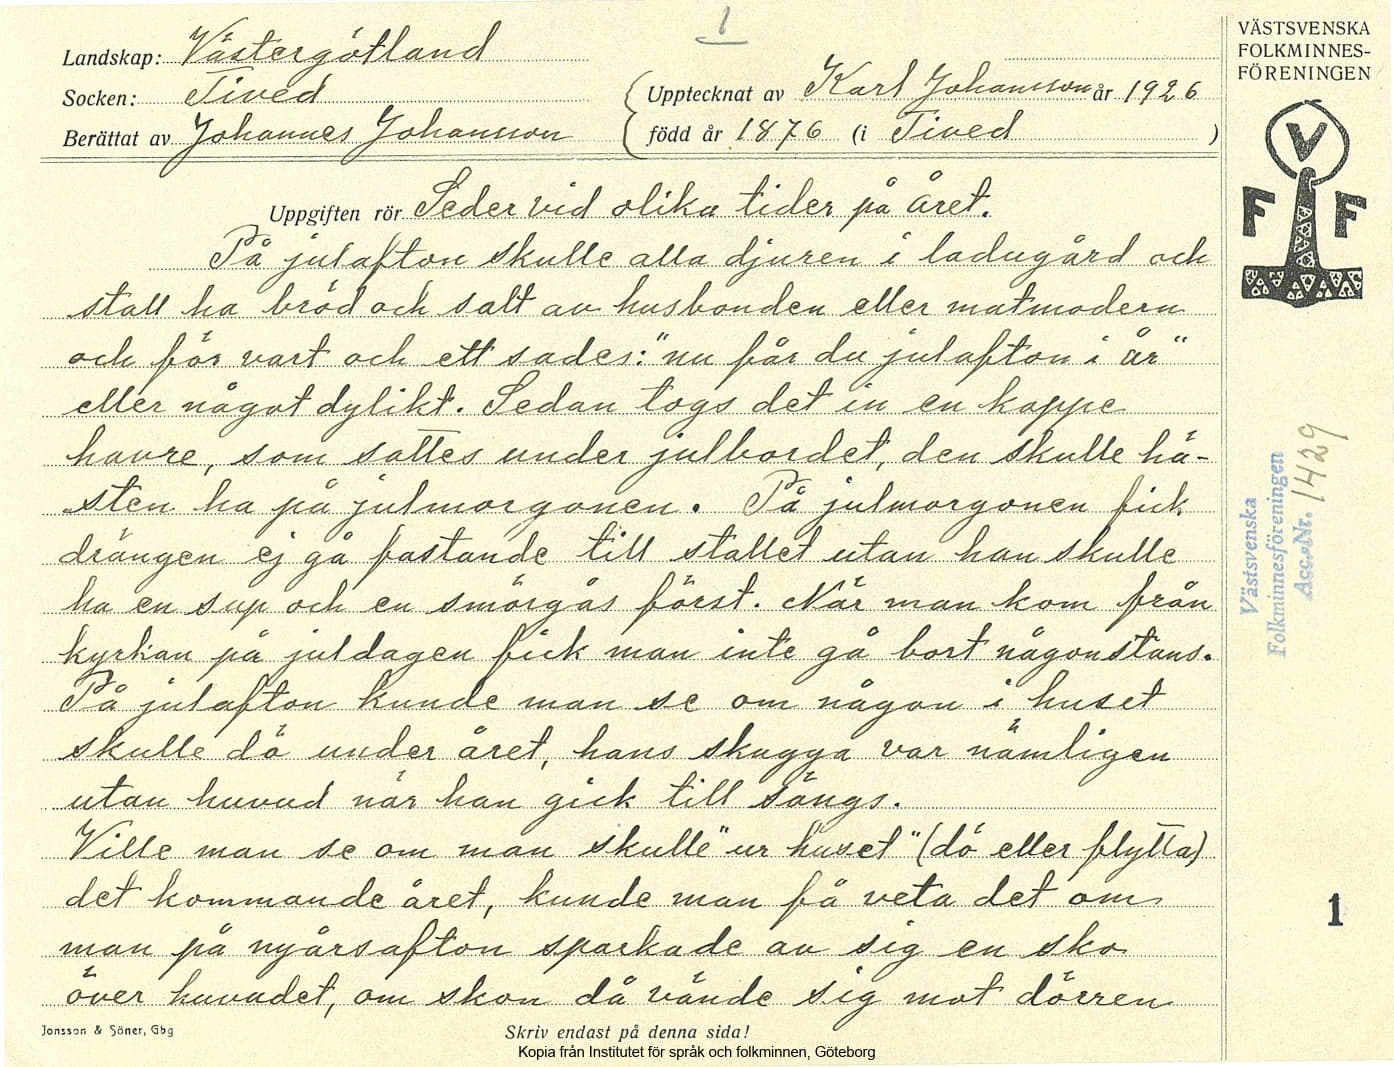 1
Landskap: Västergötland
Socken: Tived
Berättat av Johannes Johansson
Upptecknat av Karl Johansson år 1926
född år 1876 (i Tived )
Uppgiften rör Seder vid olika tider på året.
På julafton skulle alla djuren i ladugård och
stall ha bröd och salt av husbonden eller matmodern
och för vart och ett sades: "nu får du julafton i år"
eller något dylikt. Sedan togs det in en kappe
havre, som sattes under julbordet, den skulle hä-
sten ha på julmorgonen. På julmorgonen fick
drängen ej gå fastande till stallet utan han skulle
ha en sup och en smörgås först. När man kom från
kyrkan på juldagen fick man inte gå bort någonstans.
På julafton kunde man se om någon i huset
skulle dö under året, hans skugga var nämligen
utan huvud när han gick till sängs.
Ville man se om man skulle "ur huset" (dö eller flytta)
det kommande året, kunde man få veta det om
man på nyårsafton sparkade av sig en sko
över huvudet, om skon då vände sig mot dörren
Jonsson & Söner, Gbg
Skriv endast på denna sida!
Kopia från Institutet för språk och folkminnen, Göteborg
VÄSTSVENSKA
FOLKMINNES-
FÖRENINGEN
V
F F
Västsvenska
Folkminnesföreningen
Acc. Nr. 1429
1